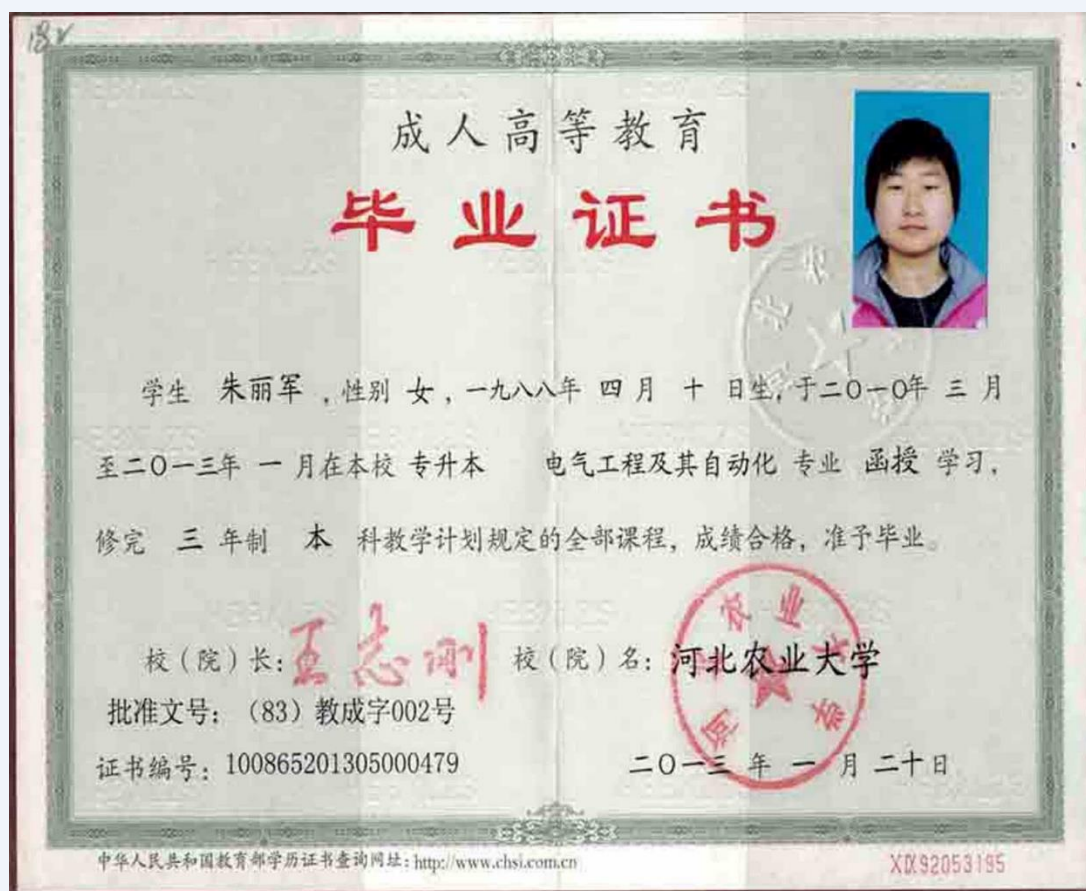 182
成人高等教育
毕业证书
学生 朱丽军 ，性别 女 ，一九八八年 四 月 十 日生，于二〇一〇年 三 月
至二〇一三年 一 月在本校 专升本 电气工程及其自动化 专业 函授 学习，
修完 三 年制 本 科教学计划规定的全部课程，成绩合格，准予毕业。
校（院）长：王志刚 校（院）名：河北农业大学
河北农业大学
批准文号：（83）教成字002号
证书编号：100865201305000479 二〇一三 年 一 月 二十日
中华人民共和国教育部学历证书查询网址：http://www.chsi.com.cn